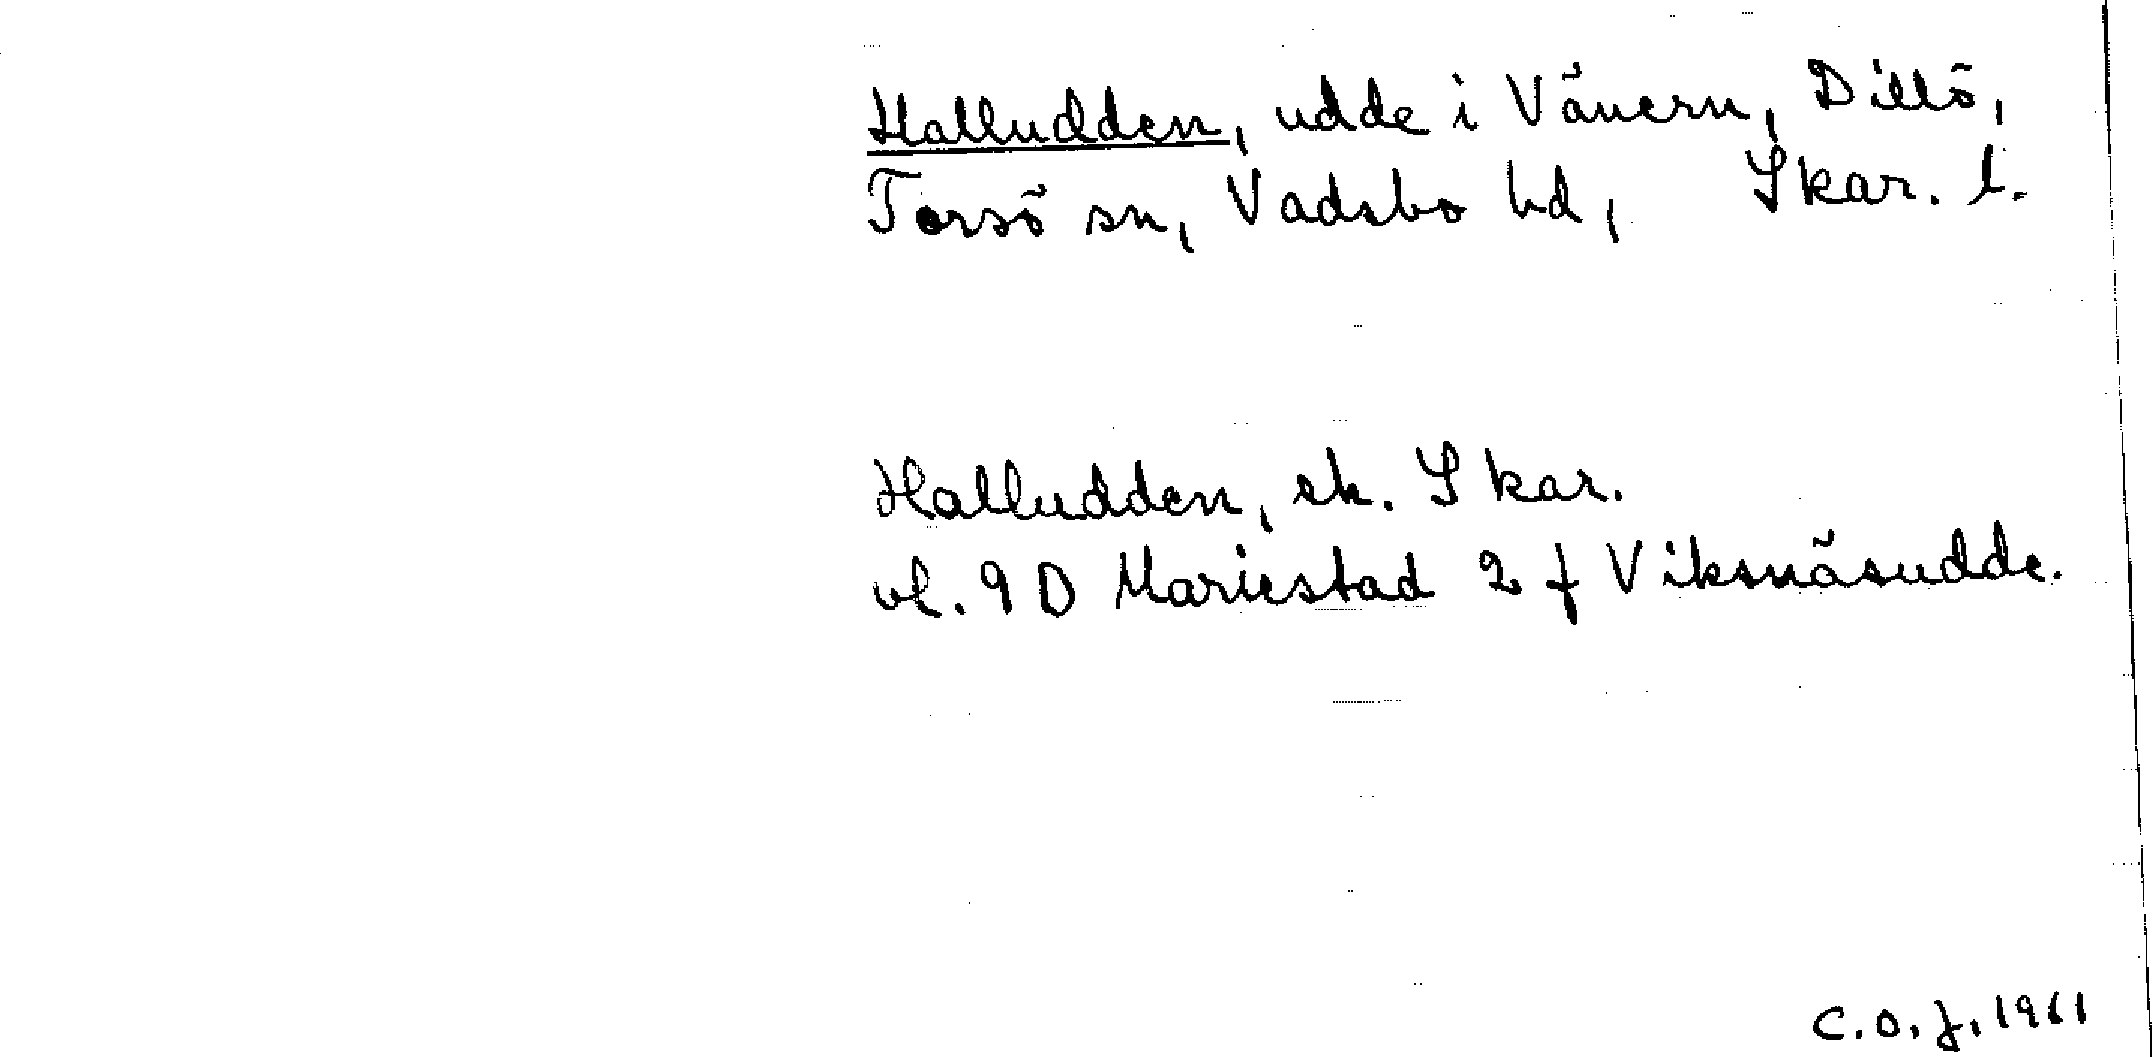 Halludden, udde i Vänern, Dillö,
Torsö sn, Vadsbo hd, Skar. l.
Halludden, ek. Skar.
bl. 9 D Mariestad 2 f Viksnäsudde.
C.O.J. 1961